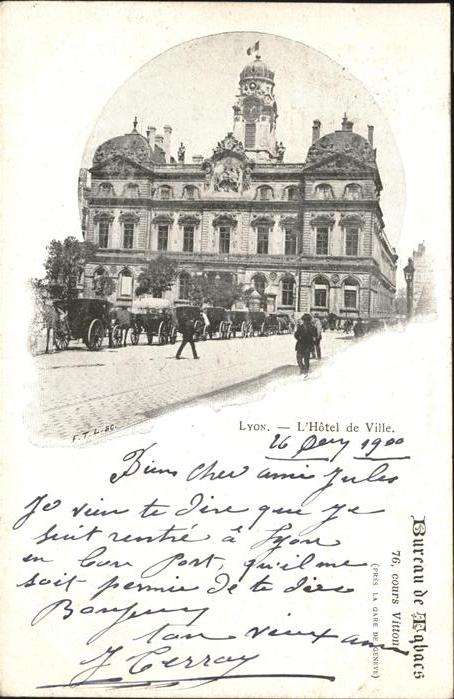 F. T. L. SC.
Lyon. — L'Hôtel de Ville.
26 1900
Bien cher ami Jules
Je vien te dire que je
suit rentré à Lyon
en bon port, qu'il me
soit permie de te dire
Bonjour
ton vieux ami
J Terray
Bureau de Tabacs
76, cours Vitton
(PRÈS LA GARE DE GENÈVE)